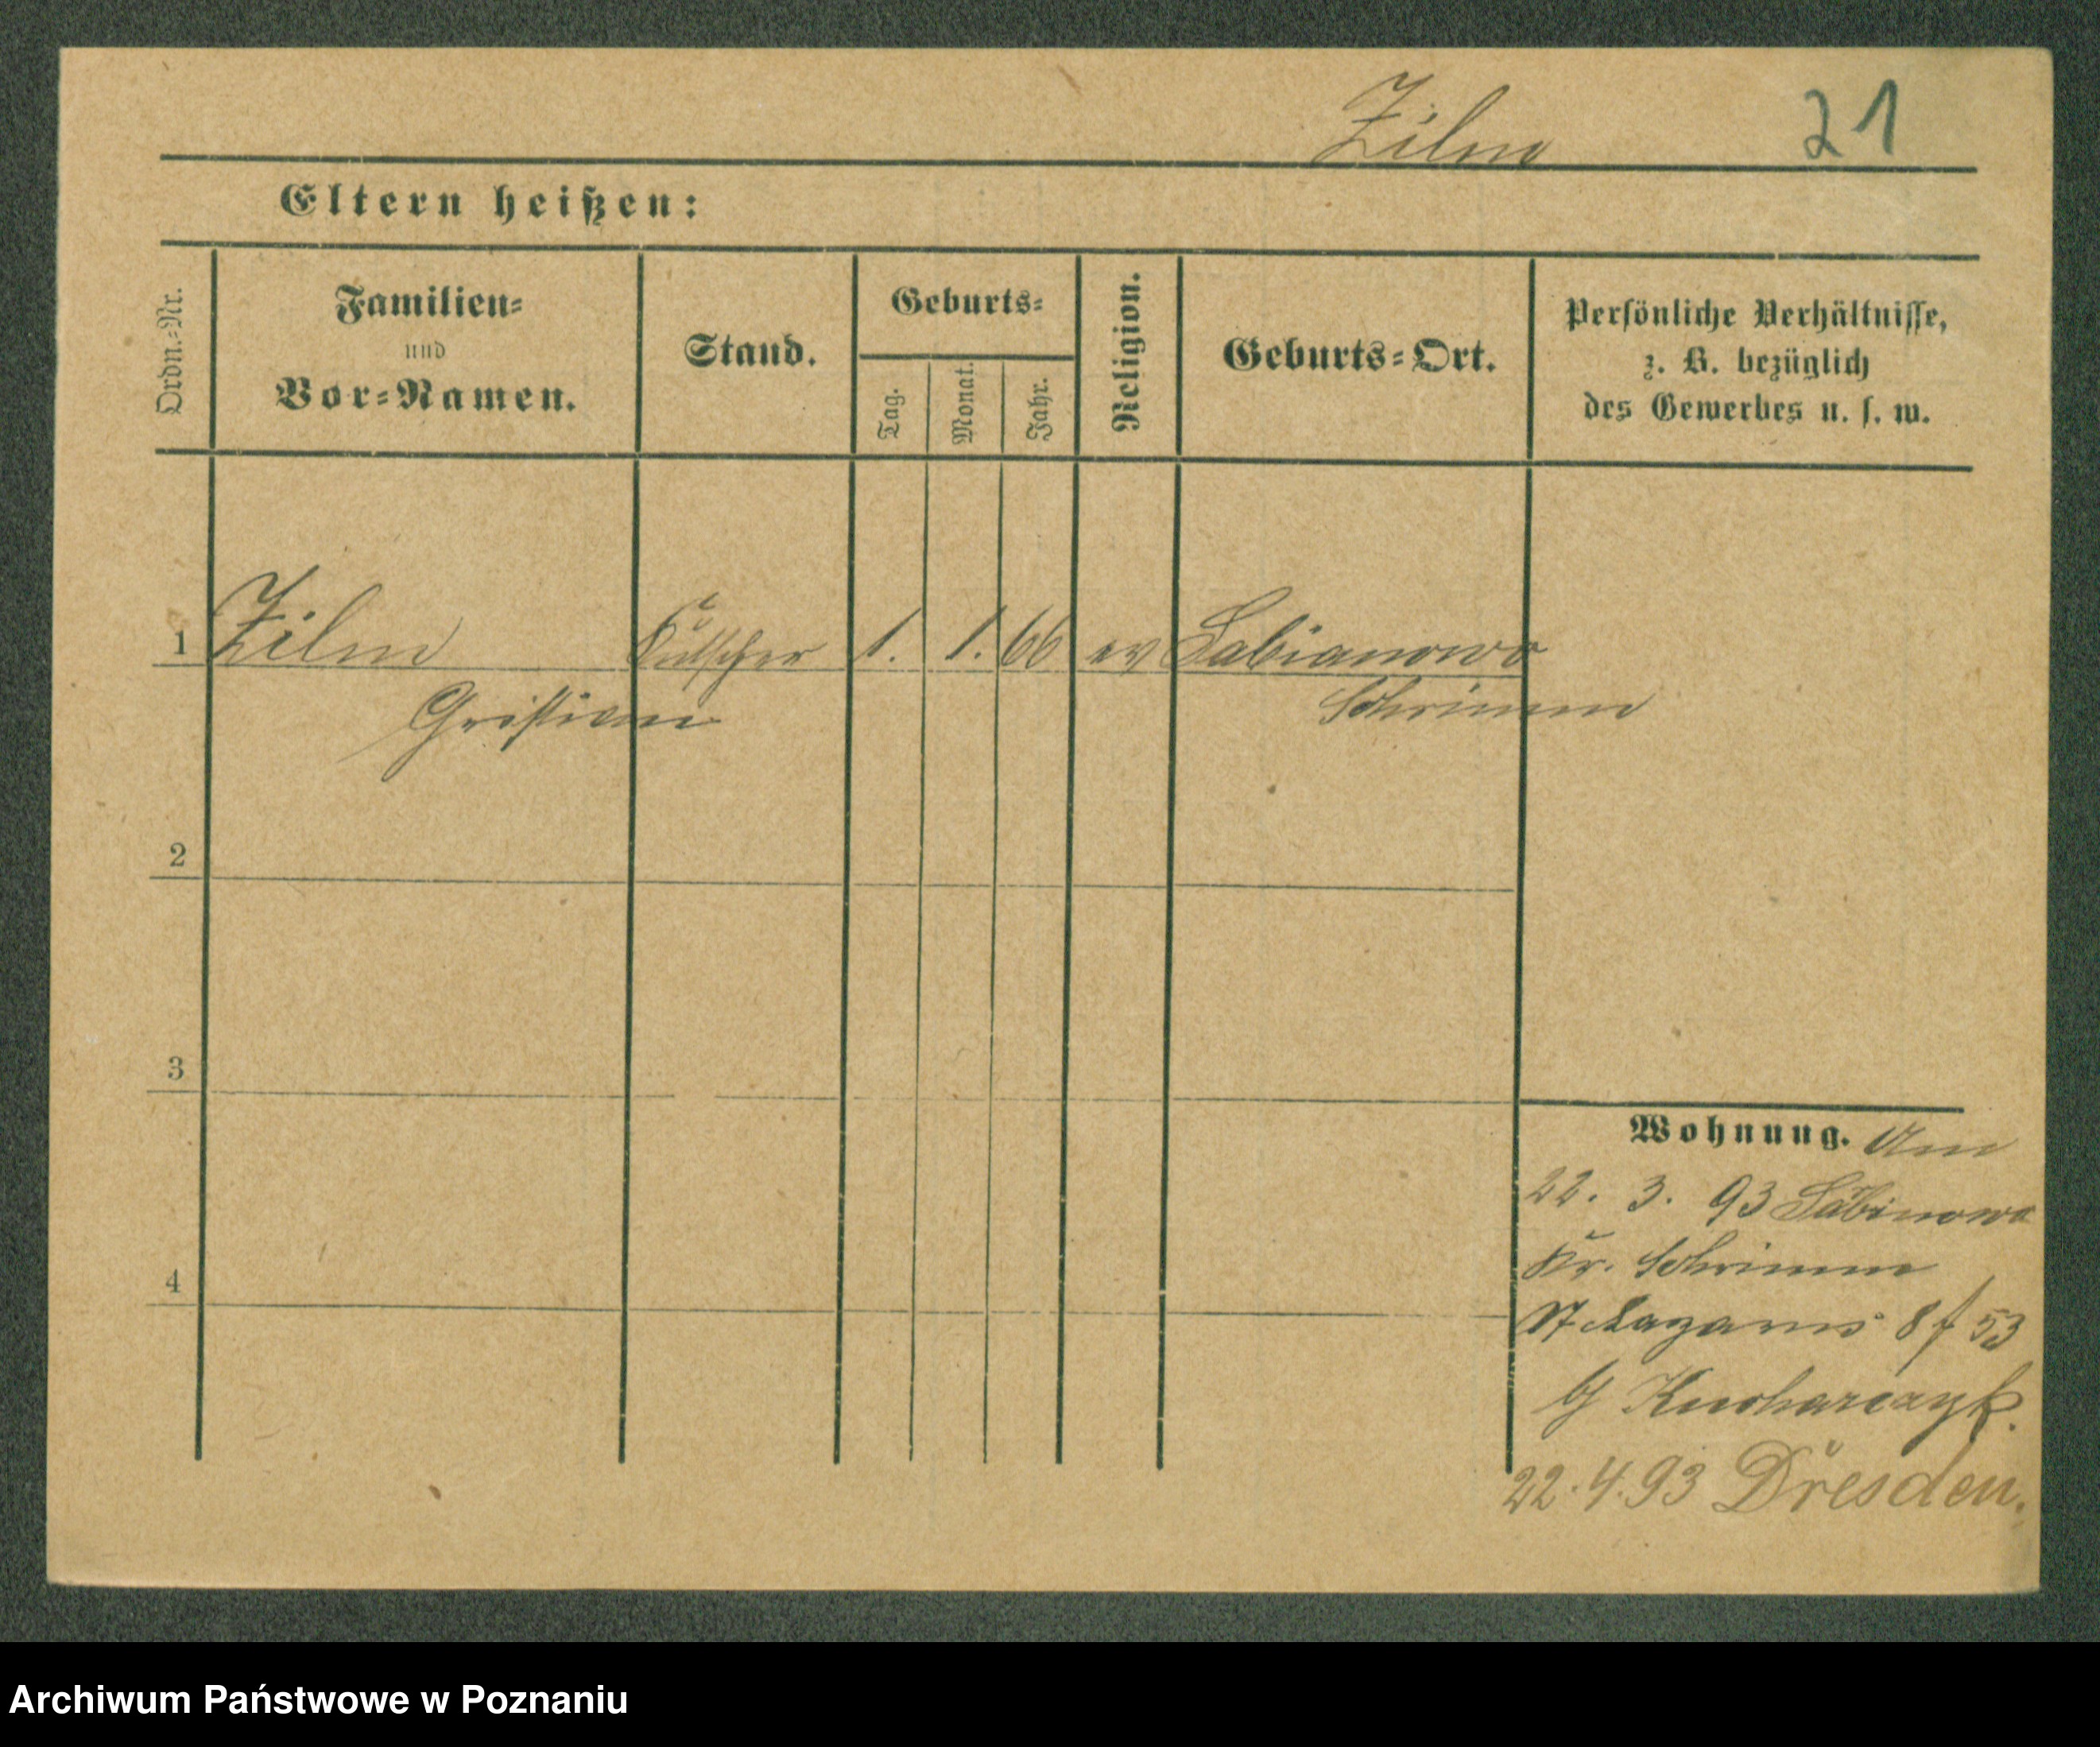 Zilm 21
Eltern heißen:
Ordn.-Nr.
Familien-
und
Vor-Namen.
Stand.
Geburts-
Tag.
Monat.
Jahr.
Religion.
Geburts-Ort.
Persönliche Verhältnisse,
z. B. bezüglich
des Gewerbes u. s. w.
1 Zilm Kutscher 1. 1. 66 ev Sabianowo
Gristian Schrimm
2
3
4
Wohnung. Am
22. 3. 93 Sabinowo
Kr. Schrimm
St Lazarus 8 f 53
b/ Kucharczyk.
22.4.93 Dresden.
Archiwum Państwowe w Poznaniu